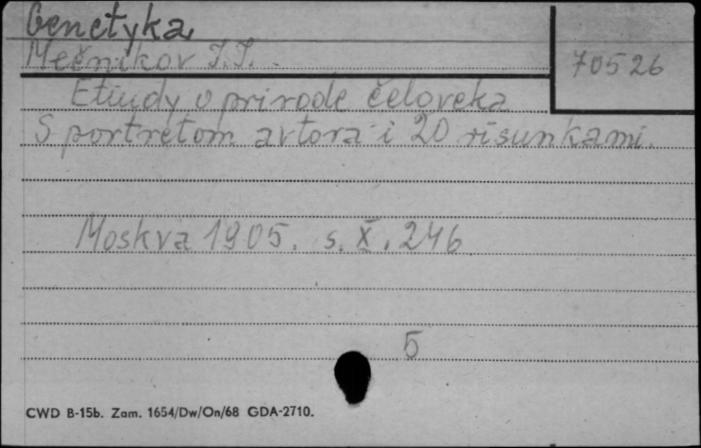 Genetyka
Mečnikov I.I.
70526
Etiudy o prirode čeloveka
S portretom avtora i 20 risunkami.
Moskva 1905. s. X, 246
5
CWD B-15b. Zam. 1654/Dw/On/68 GDA-2710.